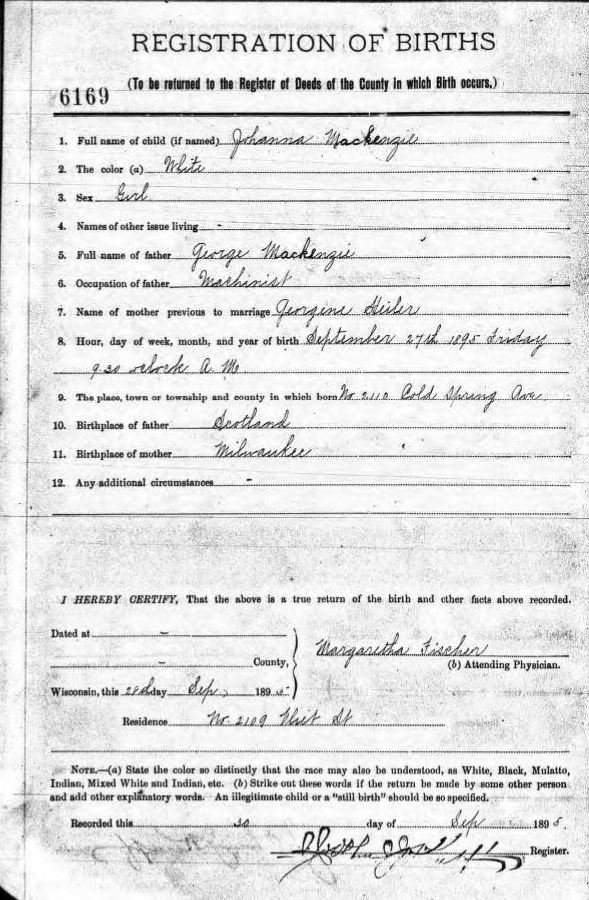 REGISTRATION OF BIRTHS
(To be returned to the Register of Deeds of the County in which Birth occurs.)
6169
1. Full name of child (if named) Johanna Mackenzie
2. The color (a) White
3. Sex Girl
4. Names of other issue living -
5. Full name of father George Mackenzie
6. Occupation of father Machinist
7. Name of mother previous to marriage Georgine Heiler
8. Hour, day of week, month, and year of birth September 27th 1895 Friday
9.30 oclock A.M
9. The place, town or township and county in which born No 2110 Cold Spring Ave
10. Birthplace of father Scotland
11. Birthplace of mother Milwaukee
12. Any additional circumstances -
I HEREBY CERTIFY, That the above is a true return of the birth and other facts above recorded.
Dated at -
Margaretha Fischer
- County,
(b) Attending Physician.
Wisconsin, this 28th day Sep, 1895
Residence No. 2109 Vliet St
NOTE.—(a) State the color so distinctly that the race may also be understood, as White, Black, Mulatto,
Indian, Mixed White and Indian, etc. (b) Strike out these words if the return be made by some other person
and add other explanatory words. An illegitimate child or a "still birth" should be so specified.
Recorded this 30 day of Sep 1895.
Register.